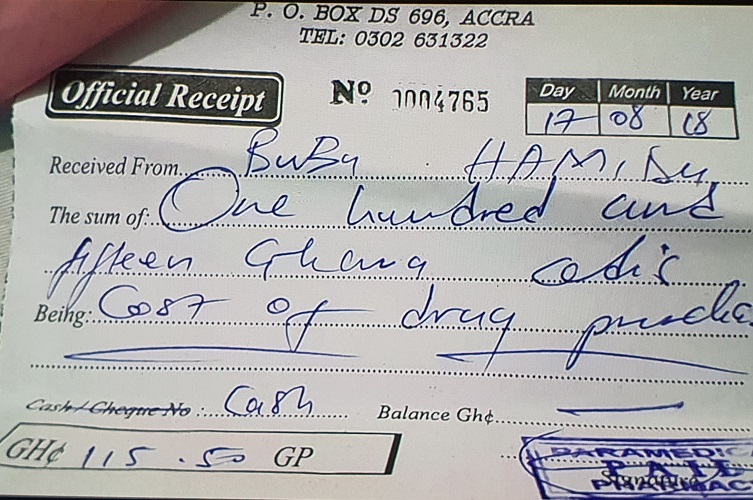 P. O. BOX DS 696, ACCRA
TEL: 0302 631322
Official Receipt Nº 1004765 Day Month Year
17 08 18
Received From BuBu HAMIDU
The sum of: One hundred and
fifteen Ghana cedis
Being: Cost of drug
Cash / Cheque No : Cash Balance Gh¢
GH¢ 115.50 GP
PARAMEDIC
PAID
Signature